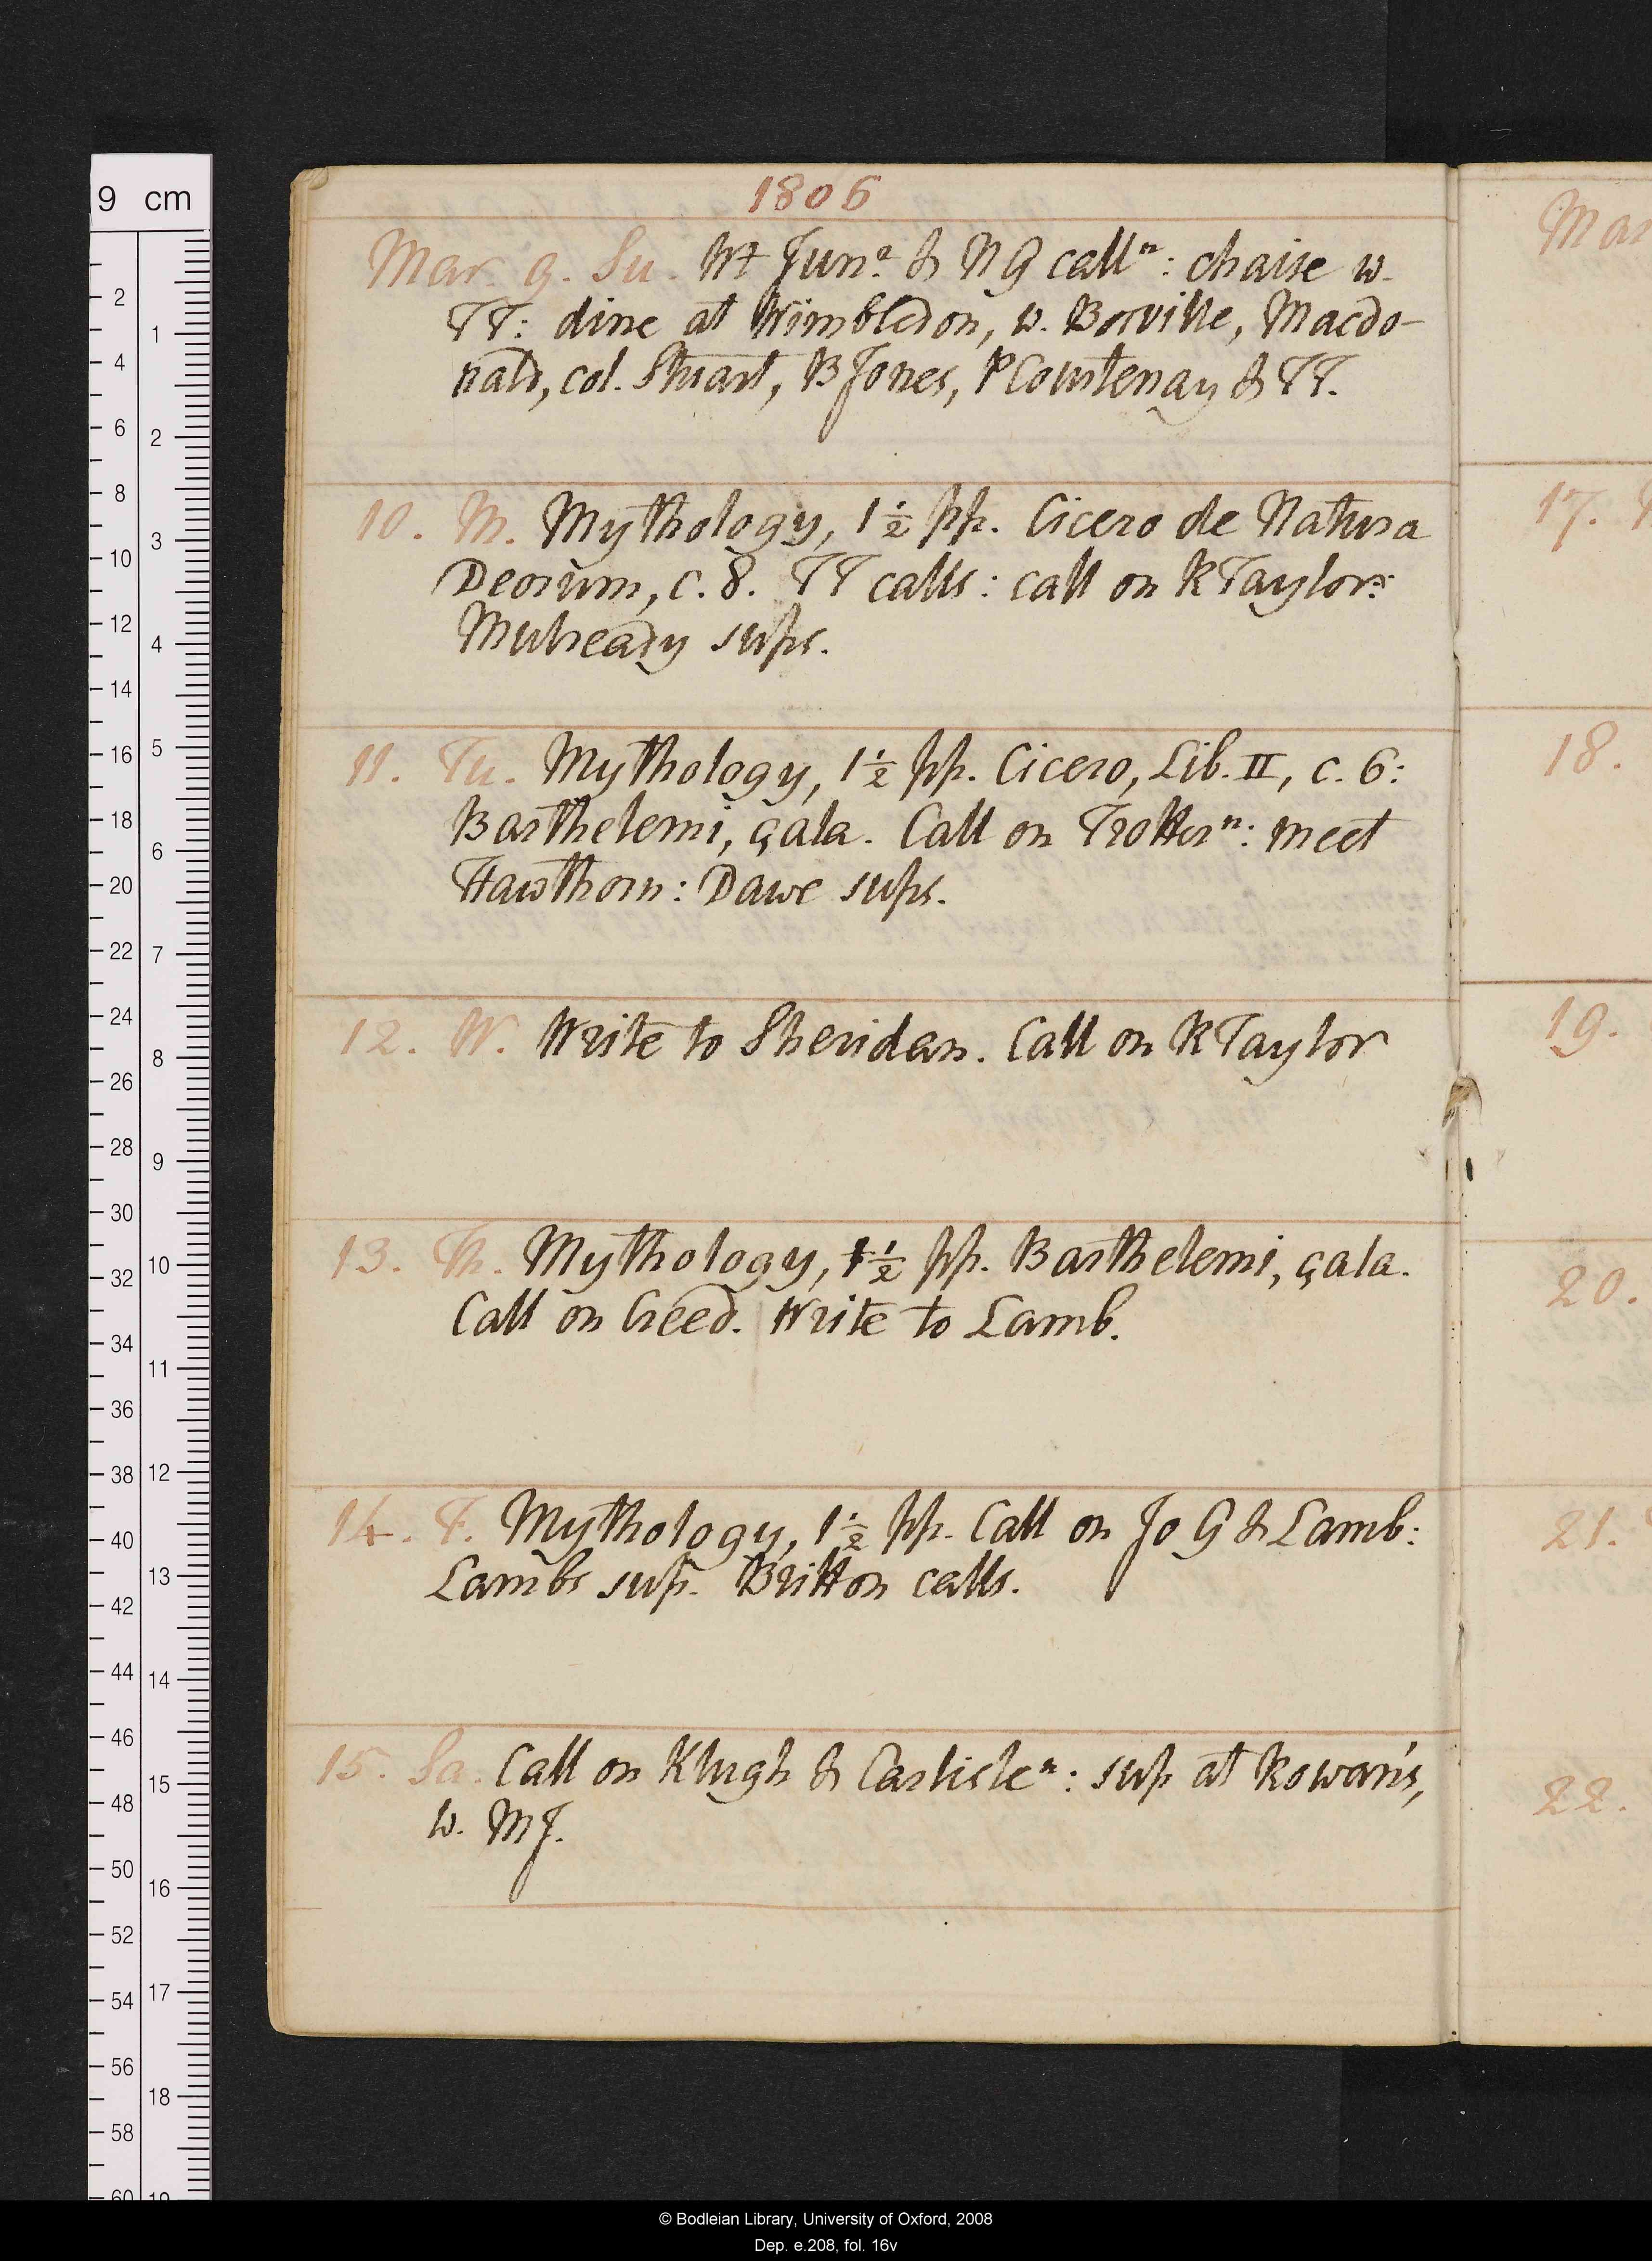 1806
Mar. 9. Su. Wt Junr & N G calln: chaise w.
TT: dine at Wimbledon, w. Bosville, Macdo-
nald, col. Stuart, B Jones, P Courtenay & TT.
10. M. Mythology, 1 1/2 pp. Cicero de Natura
Deorum, c. 8. TT calls: call on R Taylor:
Mulready sups.
11. Tu. Mythology, 1 1/2 pp. Cicero, Lib. II, c. 6:
Barthelemi, çala. Call on Trottern: meet
Hawthorn: Dawe sups.
12. W. Write to Sheridan. Call on R Taylor
13. Th. Mythology, 1 1/2 pp. Barthelemi, çala.
Call on Creed. Write to Lamb.
14. F. Mythology, 1 1/2 pp. Call on Jo G & Lamb:
Lambs sup. Britton calls.
15. Sa. Call on Klugh & Carlislen: sup at Rowan's,
w. MJ.
Mar
17.
18.
19.
20.
21.
22.
9 cm
2 4 6 8 10 12 14 16 18 20 22 24 26 28 30 32 34 36 38 40 42 44 46 48 50 52 54 56 58 60
1 2 3 4 5 6 7 8 9 10 11 12 13 14 15 16 17 18 19
© Bodleian Library, University of Oxford, 2008
Dep. e.208, fol. 16v